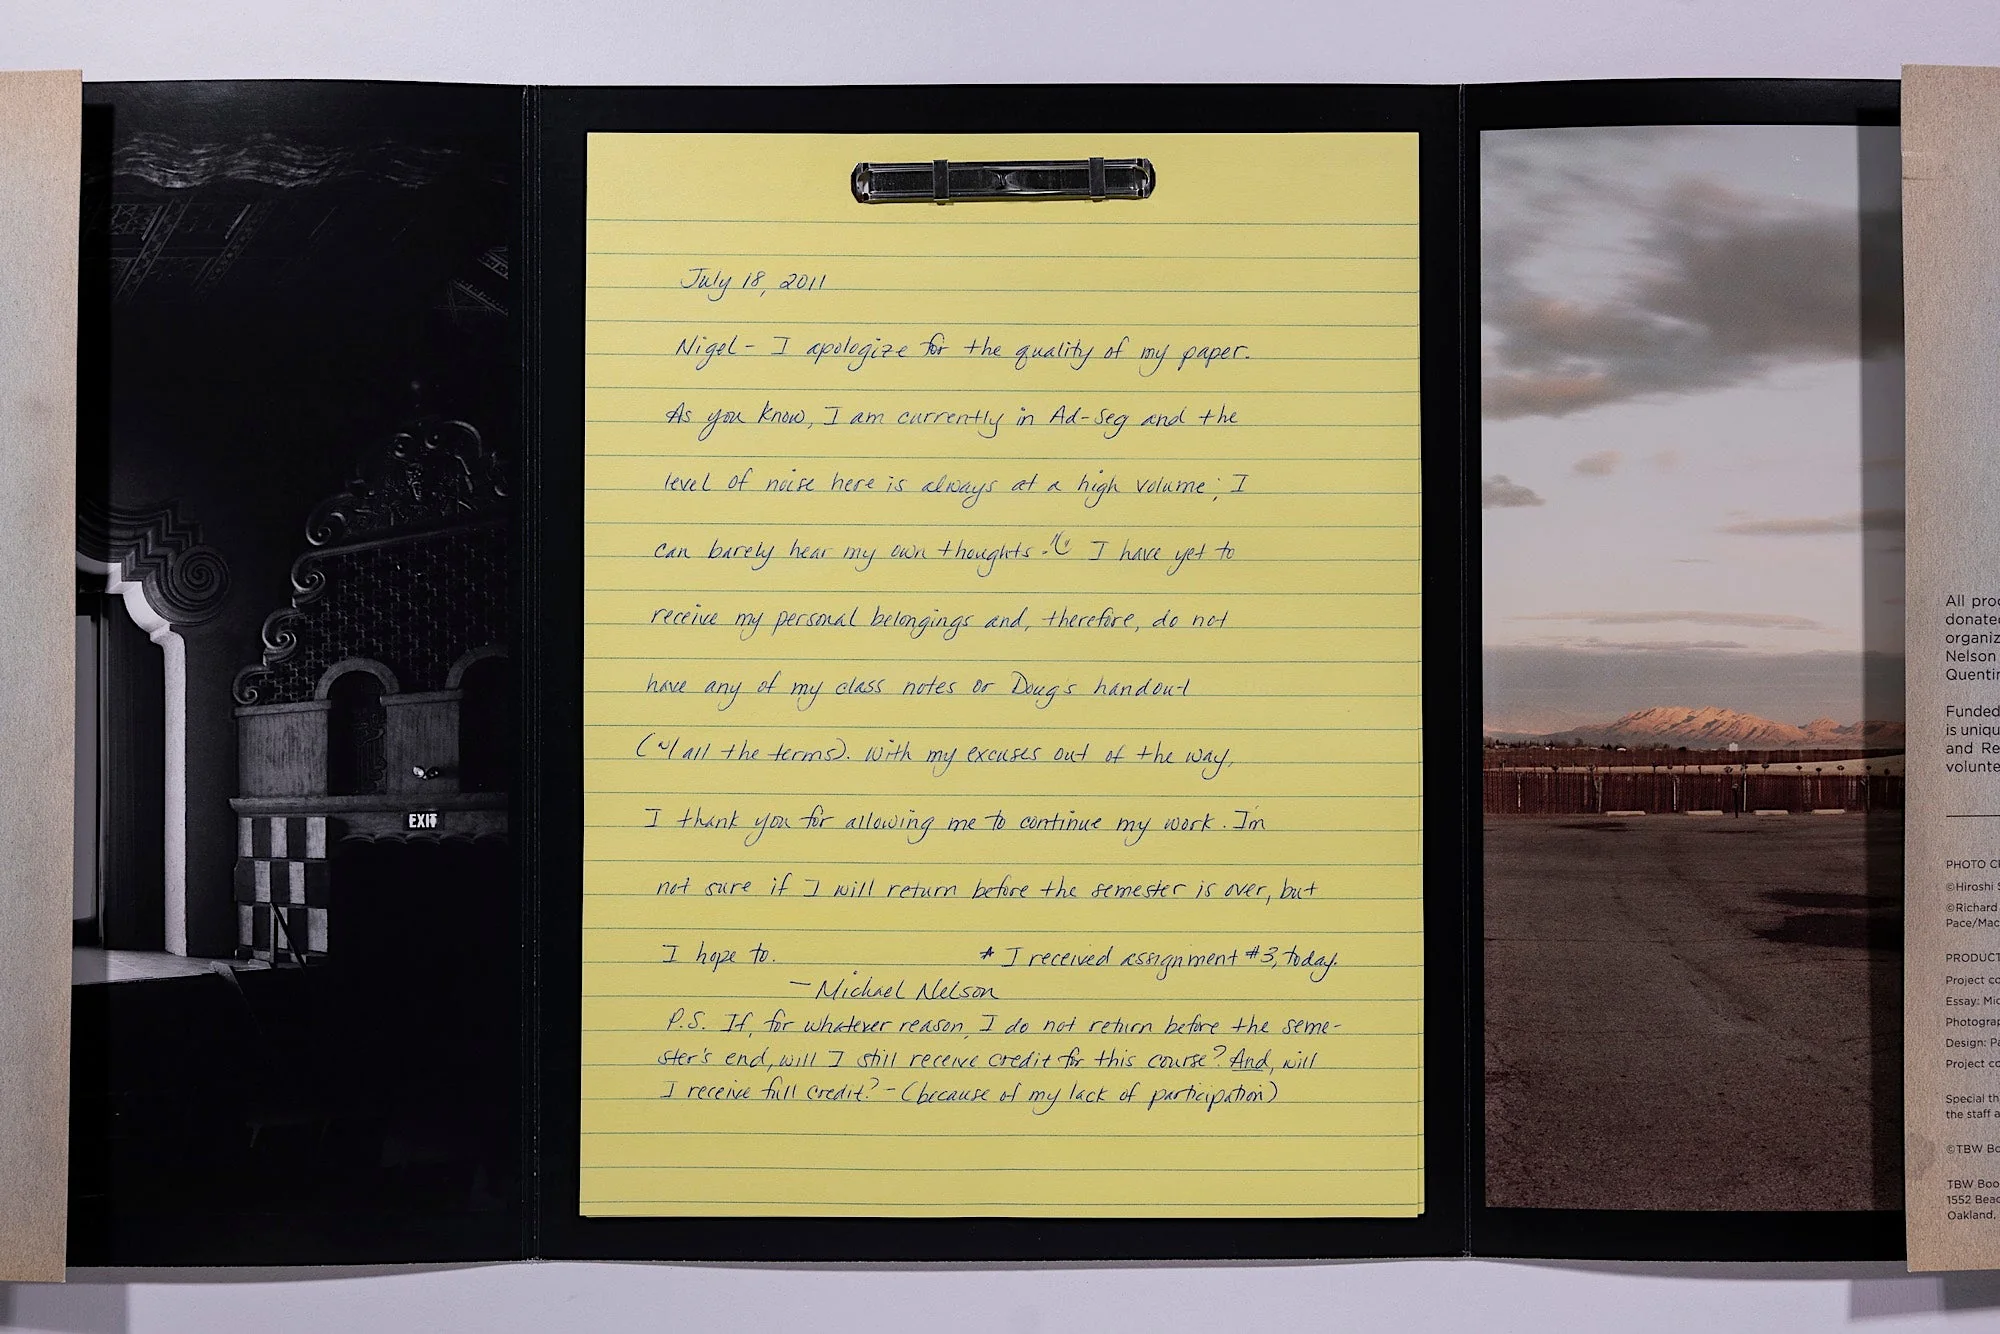 EXIT
July 18, 2011
Nigel - I apologize for the quality of my paper.
As you know, I am currently in Ad-Seg and the
level of noise here is always at a high volume; I
can barely hear my own thoughts. I have yet to
receive my personal belongings and, therefore, do not
have any of my class notes or Doug's handout
(w/ all the terms). With my excuses out of the way,
I thank you for allowing me to continue my work. I'm
not sure if I will return before the semester is over, but
I hope to.
* I received assignment #3, today.
- Michael Nelson
P.S. If, for whatever reason, I do not return before the seme-
ster's end, will I still receive credit for this course? And, will
I receive full credit? - (because of my lack of participation)
All
donate
organiz
Nelson
Quentin
Funded
is uniqu
and Re
volunte
PHOTO
©Hiroshi
©Richard
Pace/Mac
PRODUCT
Project co
Essay: Mic
Photograp
Design: Pa
Project co
Special th
the staff a
©TBW Bo
TBW Boo
1552 Beac
Oakland,